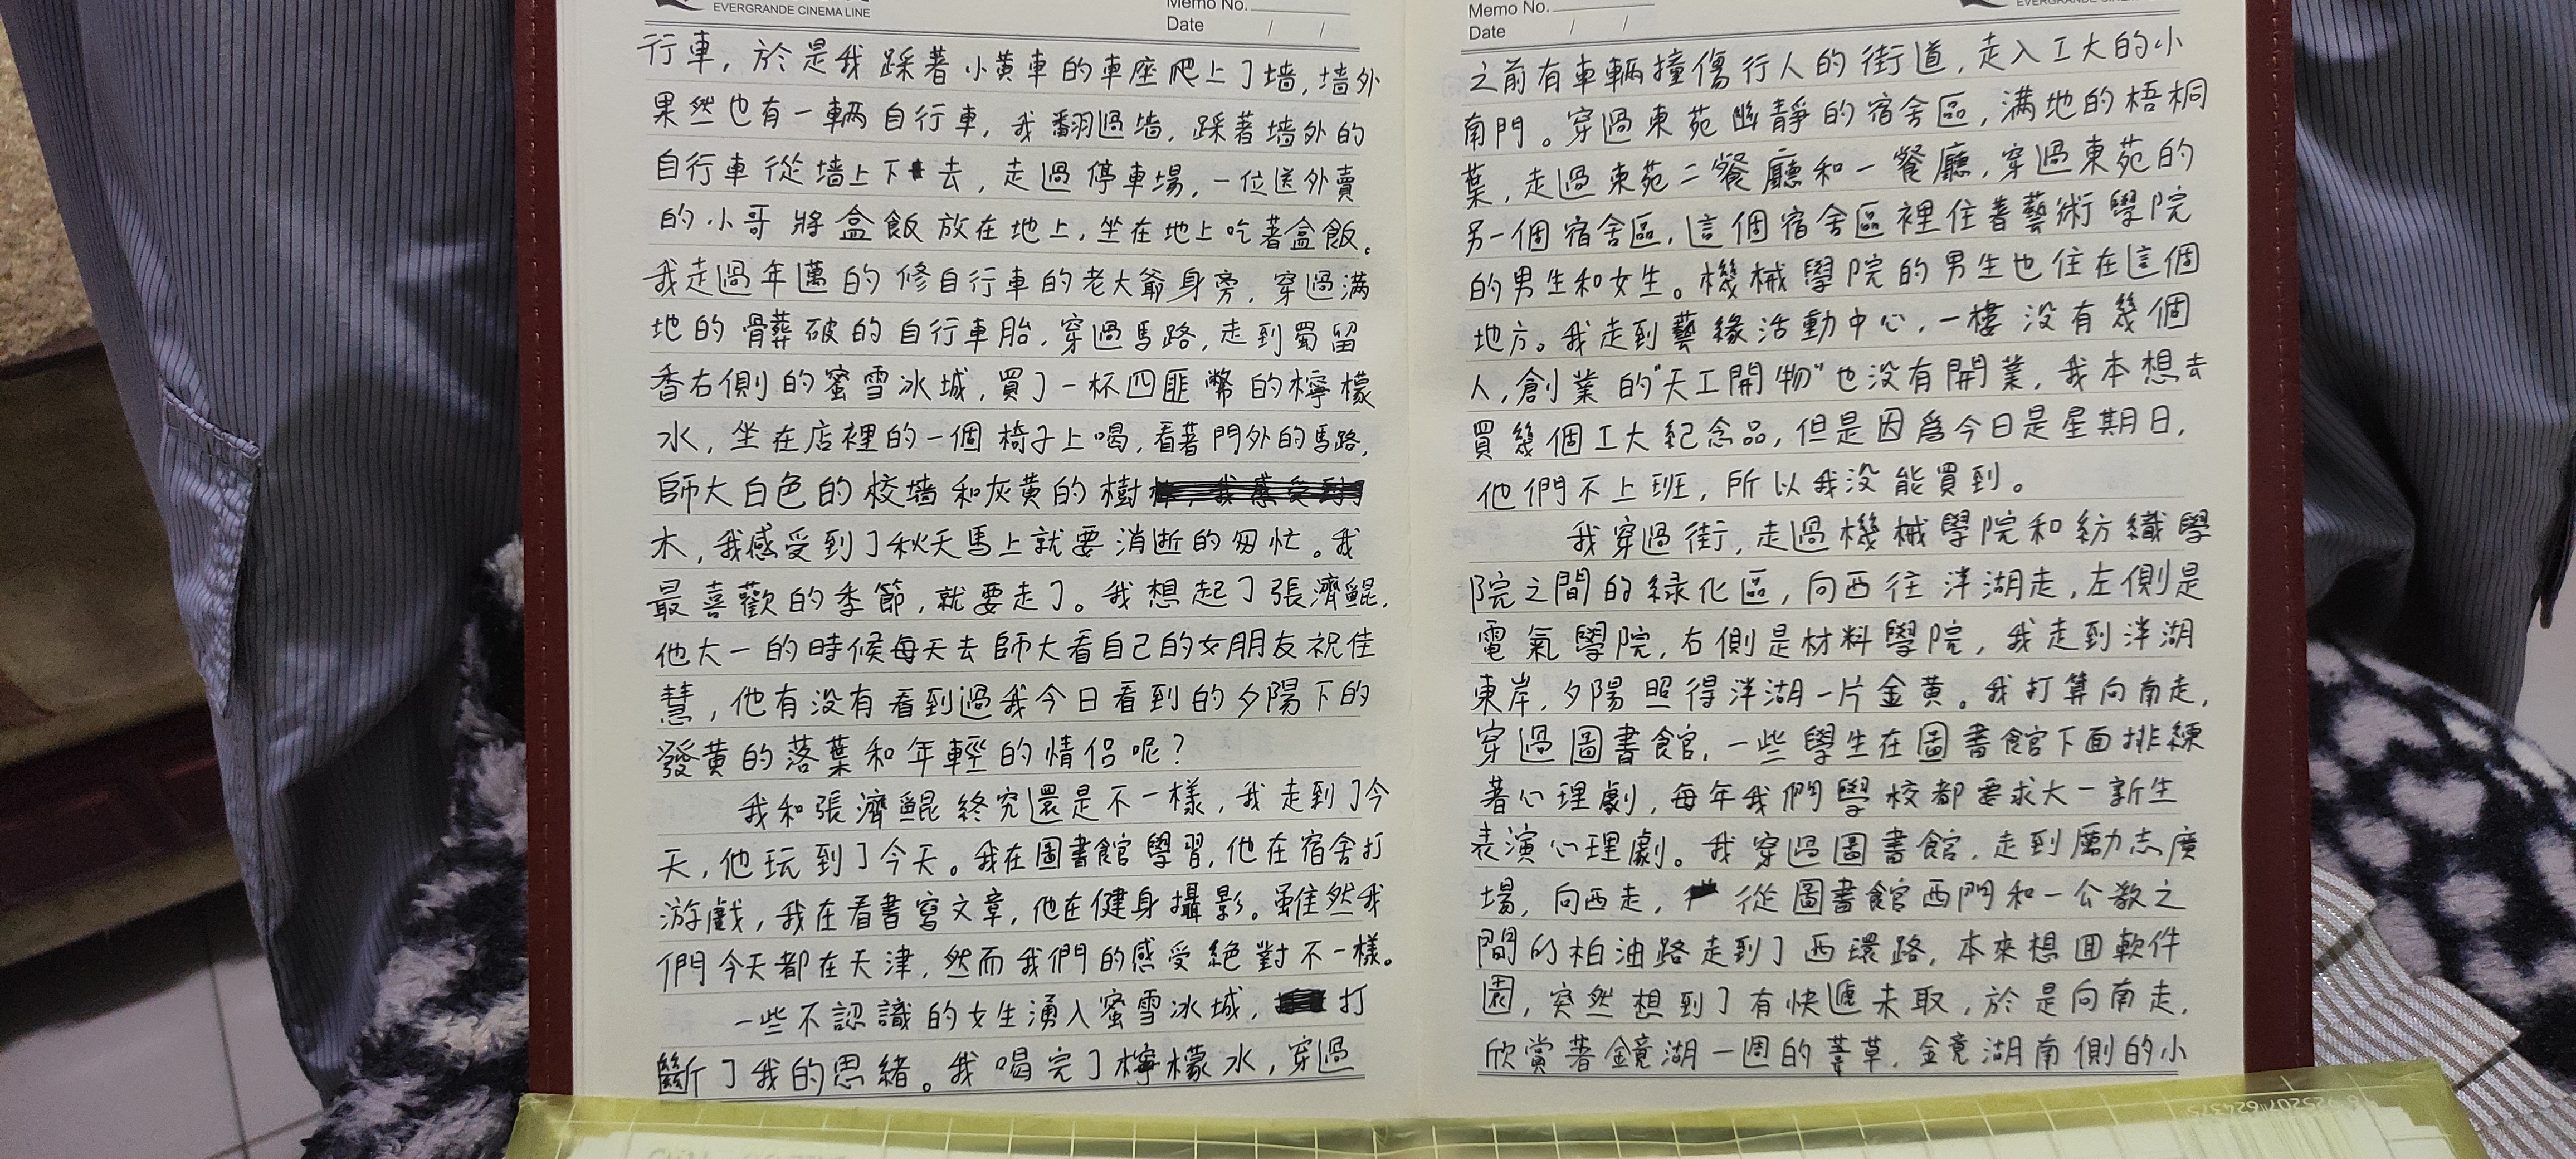 EVERGRANDE CINEMA LINE
Memo No.
Date / /
行車，於是我踩著小黃車的車座爬上了墙，墙外
果然也有一輛自行車，我翻過墙，踩著墙外的
自行車從墙上下去，走過停車場，一位送外賣
的小哥將盒飯放在地上，坐在地上吃著盒飯。
我走過年邁的修自行車的老大爺身旁，穿過满
地的骯髒破的自行車胎，穿過馬路，走到蜀留
香右側的蜜雪冰城，買了一杯四匪幣的檸檬
水，坐在店裡的一個椅子上喝，看著門外的馬路，
師大白色的校墙和灰黄的樹
木，我感受到了秋天馬上就要消逝的匆忙。我
最喜歡的季節，就要走了。我想起了張濟鯤，
他大一的時候每天去師大看自己的女朋友祝佳
慧，他有没有看到過我今日看到的夕陽下的
發黄的落葉和年輕的情侣呢？
我和張濟鯤終究還是不一樣，我走到了今
天，他玩到了今天。我在圖書館學習，他在宿舍打
游戲，我在看書寫文章，他在健身攝影。雖然我
們今天都在天津，然而我們的感受絕對不一樣。
一些不認識的女生湧入蜜雪冰城，打
斷了我的思緒。我喝完了檸檬水，穿過
Memo No.
Date / /
之前有車輛撞傷行人的街道，走入工大的小
南門。穿過東苑幽靜的宿舍區，满地的梧桐
葉，走過東苑二餐廳和一餐廳，穿過東苑的
另一個宿舍區，這個宿舍區裡住着藝術學院
的男生和女生。機械學院的男生也住在這個
地方。我走到藝緣活動中心，一樓没有幾個
人，創業的"天工開物"也没有開業，我本想去
買幾個工大紀念品，但是因為今日是星期日，
他們不上班，所以我没能買到。
我穿過街，走過機械學院和紡織學
院之間的緑化區，向西往泮湖走，左側是
電氣學院，右側是材料學院，我走到泮湖
東岸，夕陽照得泮湖一片金黄。我打算向南走，
穿過圖書館，一些學生在圖書館下面排練
著心理劇，每年我們學校都要求大一新生
表演心理劇。我穿過圖書館，走到勵志廣
場，向西走，從圖書館西門和一公教之
間的柏油路走到了西環路，本來想回軟件
園，突然想到了有快遞未取，於是向南走，
欣賞著鏡湖一週的葦草，鏡湖南側的小